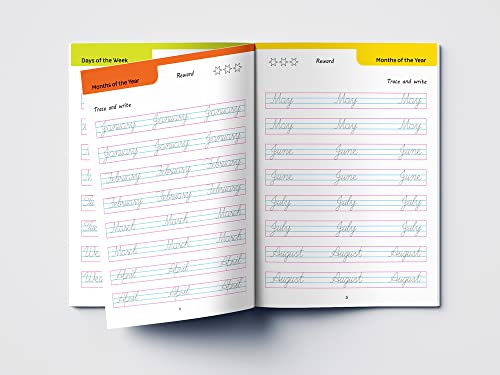 Days of the Week
Months of the Year
Reward
Trace and write
January January January
January January January
February February February
February February February
March March March
March March March
April April April
April April April
Reward
Months of the Year
Trace and write
May May May
May May May
June June June
June June June
July July July
July July July
August August August
August August August
5